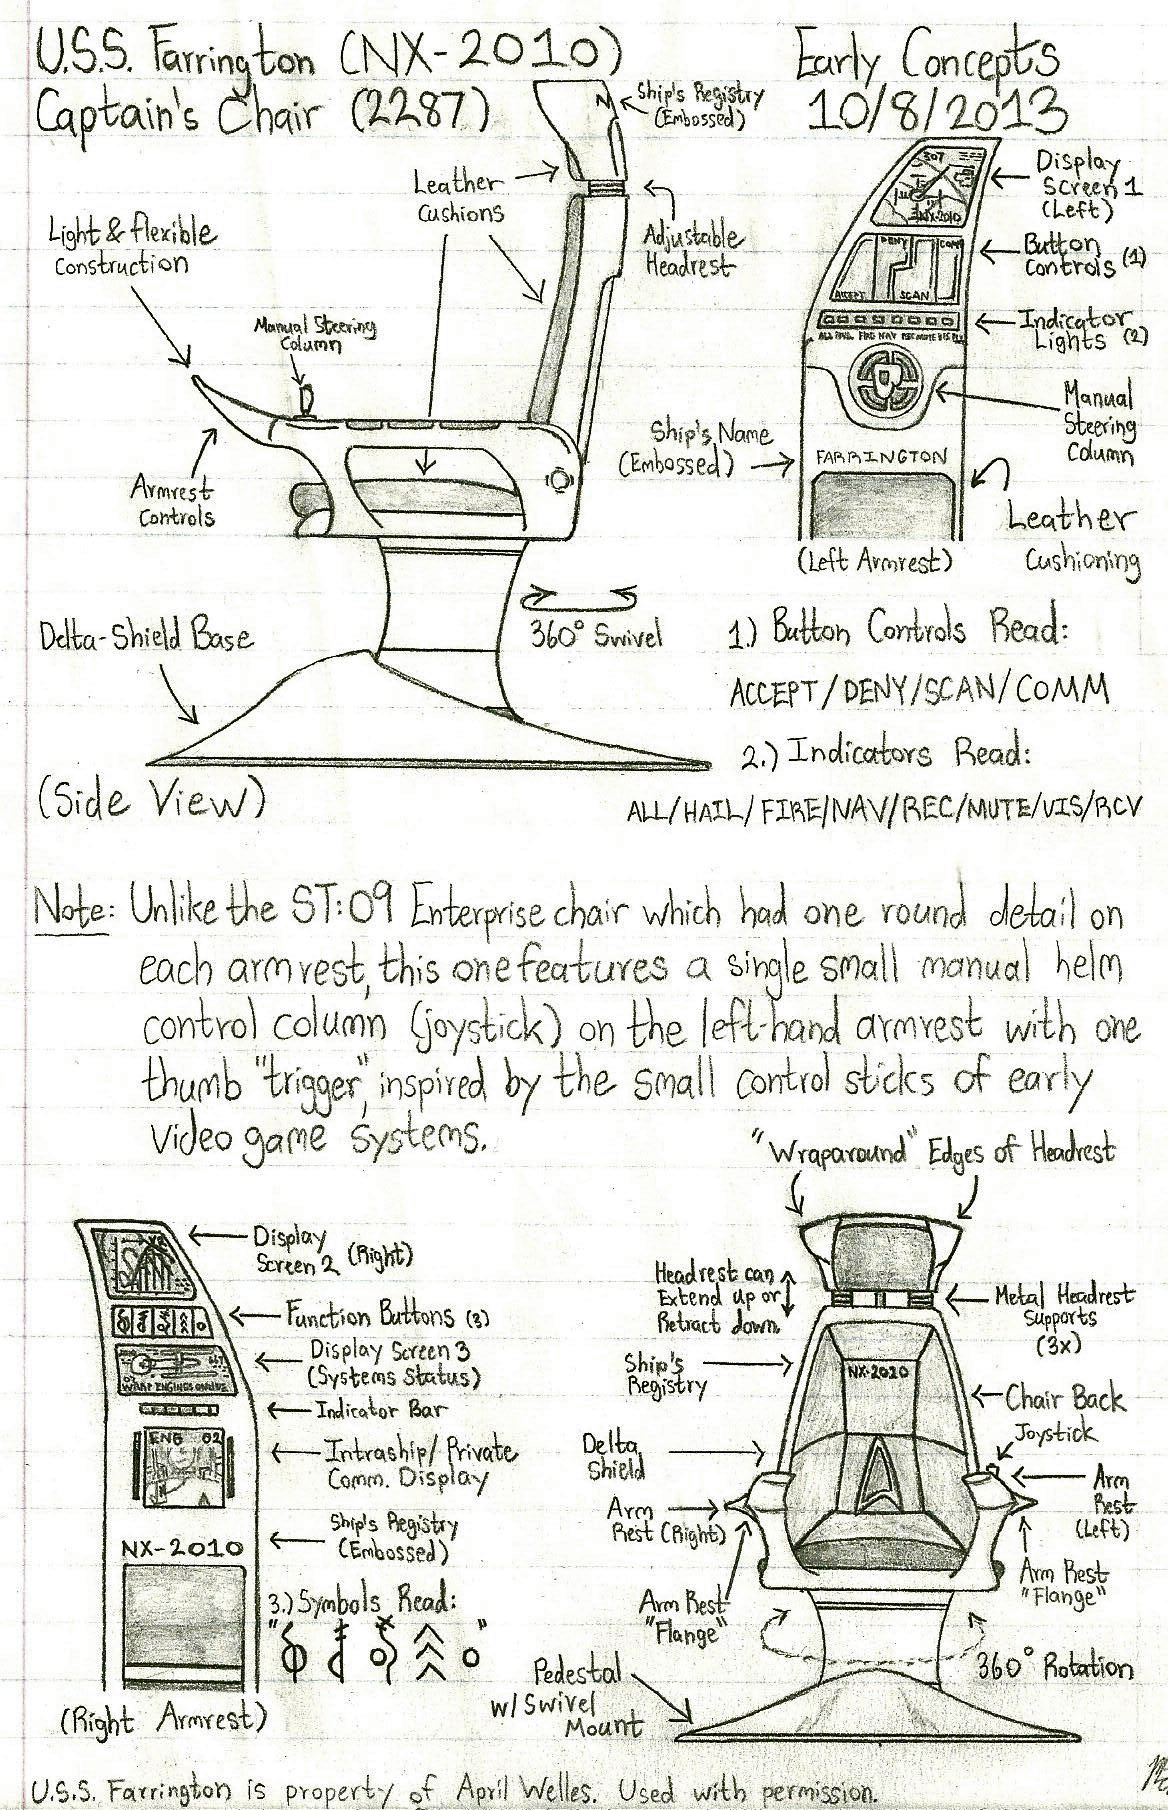 U.S.S. Farrington (NX-2010)
Captain's Chair (2287)
Early Concepts
10/8/2013
N
Ship's Registry
(Embossed)
Leather
Cushions
Adjustable
Headrest
Light & flexible
Construction
Manual Steering
Column
Armrest
Controls
Delta-Shield Base
360° Swivel
(Side View)
507
NX-2010
Display
Screen 1
(Left)
DENY
COMM
ACCEPT
SCAN
Button
Controls (1)
Indicator
Lights (2)
ALL HAIL FIRE NAV REC MUTE VIS RCV
Manual
Steering
Column
Ship's Name
(Embossed)
FARRINGTON
Leather
Cushioning
(Left Armrest)
1.) Button Controls Read:
ACCEPT/DENY/SCAN/COMM
2.) Indicators Read:
ALL/HAIL/FIRE/NAV/REC/MUTE/VIS/RCV
Note: Unlike the ST:09 Enterprise chair which had one round detail on
each armrest, this one features a single small manual helm
control column (joystick) on the left-hand armrest with one
thumb "trigger", inspired by the small control sticks of early
video game systems.
"Wraparound" Edges of Headrest
Display
Screen 2 (Right)
Function Buttons (3)
Display Screen 3
(Systems Status)
WARP ENGINES ONLINE
Indicator Bar
ENG 02
Intraship/Private
Comm. Display
Ship's Registry
(Embossed)
NX-2010
3.) Symbols Read:
" "
(Right Armrest)
Headrest can
Extend up or
Retract down
Metal Headrest
Supports
(3x)
Ship's
Registry
NX-2010
Chair Back
Joystick
Delta
Shield
Arm
Rest (Right)
Arm
Rest
(Left)
Arm Rest
"Flange"
Arm Rest
"Flange"
360° Rotation
Pedestal
w/ Swivel
Mount
U.S.S. Farrington is property of April Welles. Used with permission.